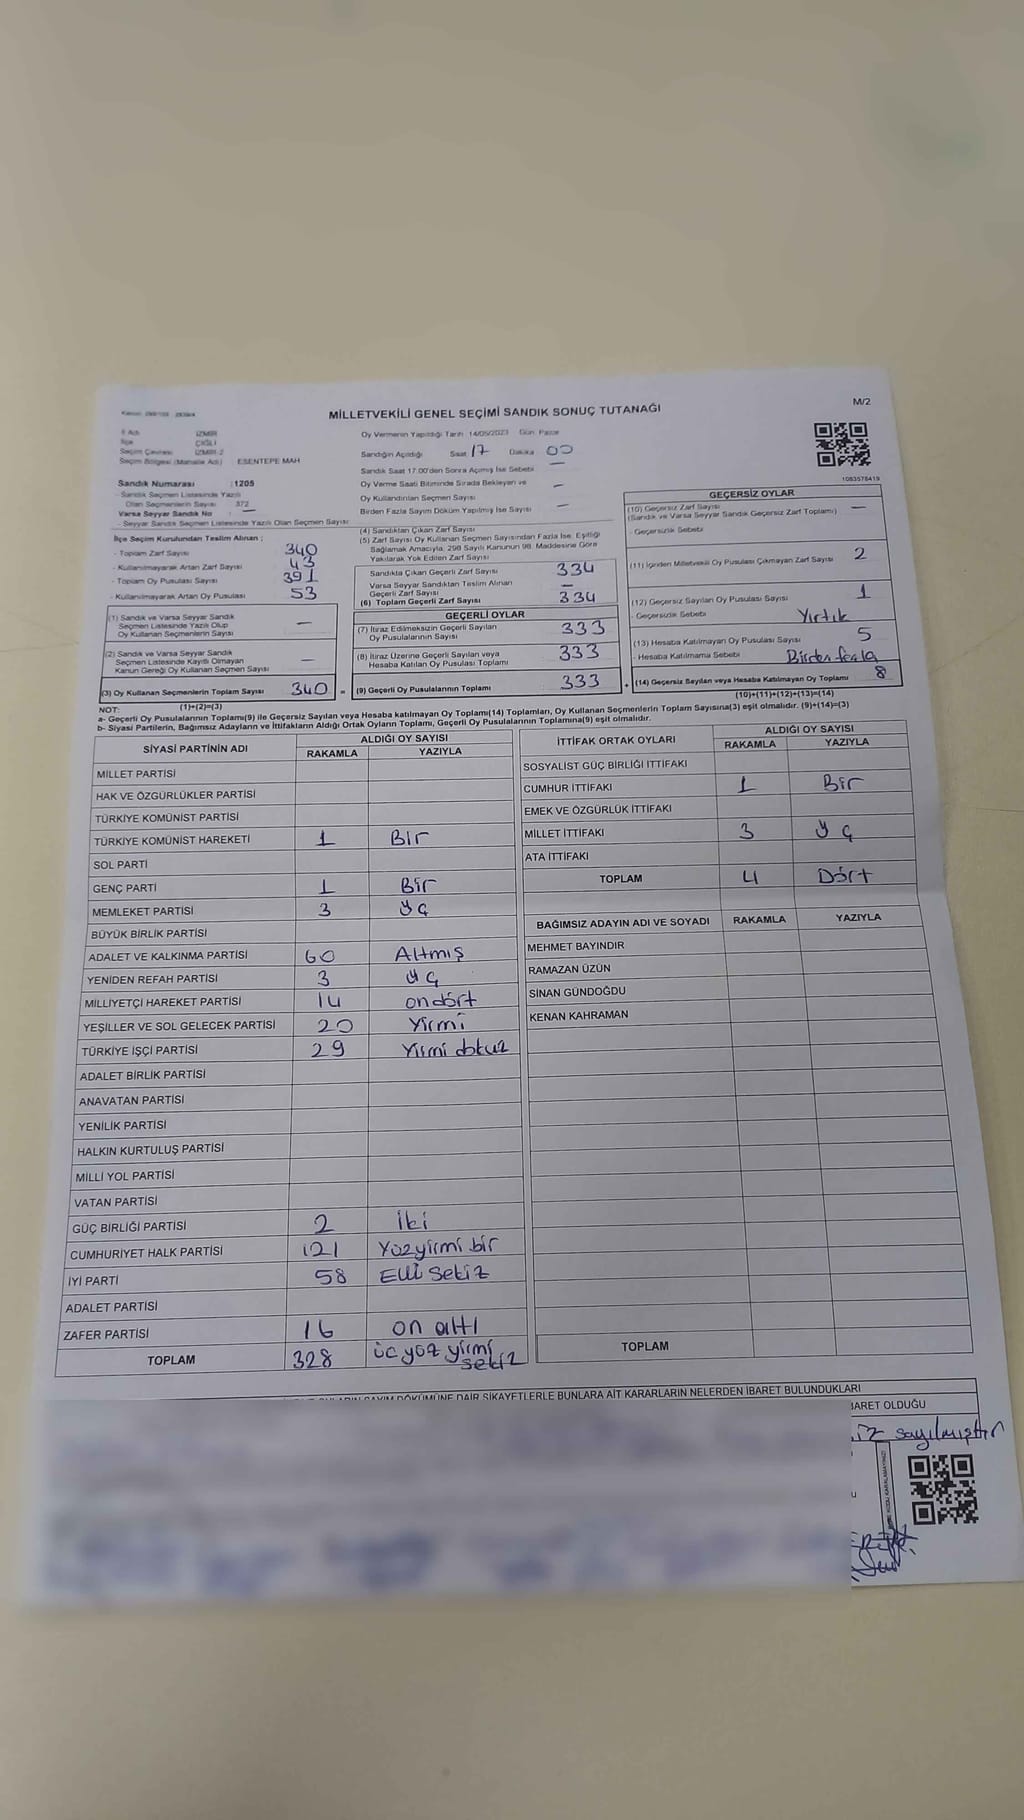 MİLLETVEKİLİ GENEL SEÇİMİ SANDIK SONUÇ TUTANAĞI
M/2
İl Adı İZMİR
İlçe ÇİĞLİ
Seçim Çevresi İZMİR-2
Seçim Bölgesi (Mahalle Adı) ESENTEPE MAH
Sandık Numarası :1205
- Sandık Seçmen Listesinde Yazılı
Olan Seçmenlerin Sayısı 372
Varsa Seyyar Sandık No : —
- Seyyar Sandık Seçmen Listesinde Yazılı Olan Seçmen Sayısı
İlçe Seçim Kurulundan Teslim Alınan ;
- Toplam Zarf Sayısı 340
- Kullanılmayarak Artan Zarf Sayısı 43
- Toplam Oy Pusulası Sayısı 391
- Kullanılmayarak Artan Oy Pusulası 53
(1) Sandık ve Varsa Seyyar Sandık
Seçmen Listesinde Yazılı Olup
Oy Kullanan Seçmenlerin Sayısı —
(2) Sandık ve Varsa Seyyar Sandık
Seçmen Listesinde Kayıtlı Olmayan
Kanun Gereği Oy Kullanan Seçmen Sayısı —
(3) Oy Kullanan Seçmenlerin Toplam Sayısı 340 =
(1)+(2)=(3)
Oy Vermenin Yapıldığı Tarih 14/05/2023 Gün Pazar
Sandığın Açıldığı Saat 17 Dakika 00
Sandık Saat 17:00'den Sonra Açımış İse Sebebi —
Oy Verme Saati Bitiminde Sırada Bekleyen ve
Oy Kullandırılan Seçmen Sayısı —
Birden Fazla Sayım Döküm Yapılmış İse Sayısı —
(4) Sandıktan Çıkan Zarf Sayısı
(5) Zarf Sayısı Oy Kullanan Seçmen Sayısından Fazla İse, Eşitliği
Sağlamak Amacıyla, 298 Sayılı Kanunun 98. Maddesine Göre
Yakılarak Yok Edilen Zarf Sayısı
Sandıkta Çıkan Geçerli Zarf Sayısı 334
Varsa Seyyar Sandıktan Teslim Alınan
Geçerli Zarf Sayısı —
(6) Toplam Geçerli Zarf Sayısı 334
GEÇERLİ OYLAR
(7) İtiraz Edilmeksizin Geçerli Sayılan
Oy Pusulalarının Sayısı 333
(8) İtiraz Üzerine Geçerli Sayılan veya
Hesaba Katılan Oy Pusulası Toplamı 333
(9) Geçerli Oy Pusulalarının Toplamı 333 +
1083578419
GEÇERSİZ OYLAR
(10) Geçersiz Zarf Sayısı
(Sandık ve Varsa Seyyar Sandık Geçersiz Zarf Toplamı) —
- Geçersizlik Sebebi
(11) İçinden Milletvekili Oy Pusulası Çıkmayan Zarf Sayısı 2
(12) Geçersiz Sayılan Oy Pusulası Sayısı 1
- Geçersizlik Sebebi Yırtık
(13) Hesaba Katılmayan Oy Pusulası Sayısı 5
- Hesaba Katılmama Sebebi Birden fazla
(14) Geçersiz Sayılan veya Hesaba Katılmayan Oy Toplamı 8
(10)+(11)+(12)+(13)=(14)
NOT:
a- Geçerli Oy Pusulalarının Toplamı(9) ile Geçersiz Sayılan veya Hesaba katılmayan Oy Toplamı(14) Toplamları, Oy Kullanan Seçmenlerin Toplam Sayısına(3) eşit olmalıdır. (9)+(14)=(3)
b- Siyasi Partilerin, Bağımsız Adayların ve İttifakların Aldığı Ortak Oyların Toplamı, Geçerli Oy Pusulalarının Toplamına(9) eşit olmalıdır.
SİYASİ PARTİNİN ADI ALDIĞI OY SAYISI
RAKAMLA YAZIYLA
MİLLET PARTİSİ
HAK VE ÖZGÜRLÜKLER PARTİSİ
TÜRKİYE KOMÜNİST PARTİSİ
TÜRKİYE KOMÜNİST HAREKETİ 1 Bir
SOL PARTİ
GENÇ PARTİ 1 Bir
MEMLEKET PARTİSİ 3 Üç
BÜYÜK BİRLİK PARTİSİ
ADALET VE KALKINMA PARTİSİ 60 Altmış
YENİDEN REFAH PARTİSİ 3 Üç
MİLLİYETÇİ HAREKET PARTİSİ 14 on dört
YEŞİLLER VE SOL GELECEK PARTİSİ 20 Yirmi
TÜRKİYE İŞÇİ PARTİSİ 29 Yirmi dokuz
ADALET BİRLİK PARTİSİ
ANAVATAN PARTİSİ
YENİLİK PARTİSİ
HALKIN KURTULUŞ PARTİSİ
MİLLİ YOL PARTİSİ
VATAN PARTİSİ
GÜÇ BİRLİĞİ PARTİSİ 2 İki
CUMHURİYET HALK PARTİSİ 121 Yüzyirmi bir
İYİ PARTİ 58 Elli sekiz
ADALET PARTİSİ
ZAFER PARTİSİ 16 on altı
TOPLAM 328 üç yüz yirmi
sekiz
İTTİFAK ORTAK OYLARI ALDIĞI OY SAYISI
RAKAMLA YAZIYLA
SOSYALİST GÜÇ BİRLİĞİ İTTİFAKI
CUMHUR İTTİFAKI 1 Bir
EMEK VE ÖZGÜRLÜK İTTİFAKI
MİLLET İTTİFAKI 3 Üç
ATA İTTİFAKI
TOPLAM 4 Dört
BAĞIMSIZ ADAYIN ADI VE SOYADI RAKAMLA YAZIYLA
MEHMET BAYINDIR
RAMAZAN ÜZÜN
SİNAN GÜNDOĞDU
KENAN KAHRAMAN
TOPLAM
SAYIM DÖKÜMÜNE DAİR ŞİKAYETLERLE BUNLARA AİT KARARLARIN NELERDEN İBARET BULUNDUKLARI
İBARET OLDUĞU
sayılmıştır